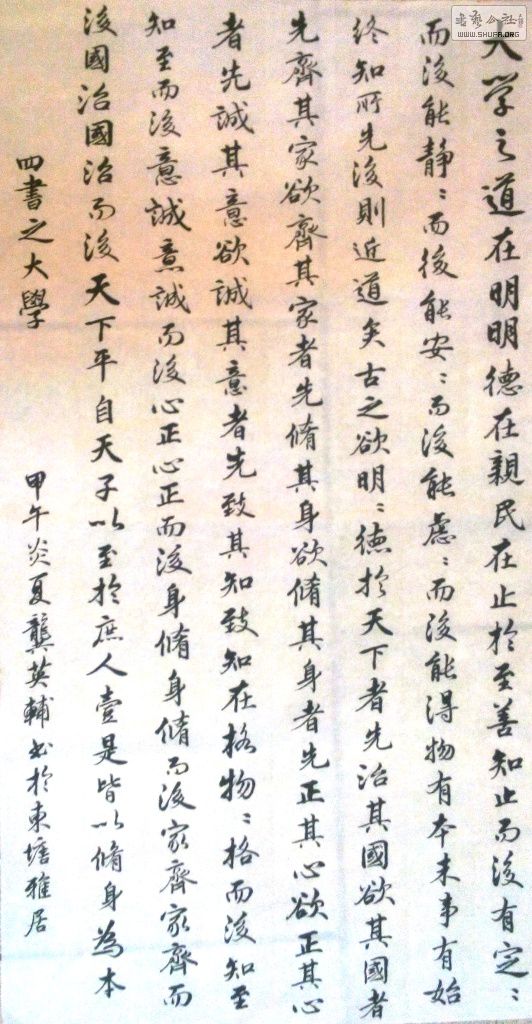 大学之道在明明德在親民在止於至善知止而後有定：
而後能静：而後能安：而後能慮：而後能得物有本末事有始
終知所先後則近道矣古之欲明：德於天下者先治其國欲其國者
先齊其家欲齊其家者先脩其身欲脩其身者先正其心欲正其心
者先誠其意欲誠其意者先致其知致知在格物：格而後知至
知至而後意誠意誠而後心正心正而後身脩身脩而後家齊家齊而
後國治國治而後天下平自天子以至於庶人壹是皆以脩身為本
四書之大學
甲午炎夏龔英輔书於東塘雅居
书艺公社
WWW.SHUFA.ORG